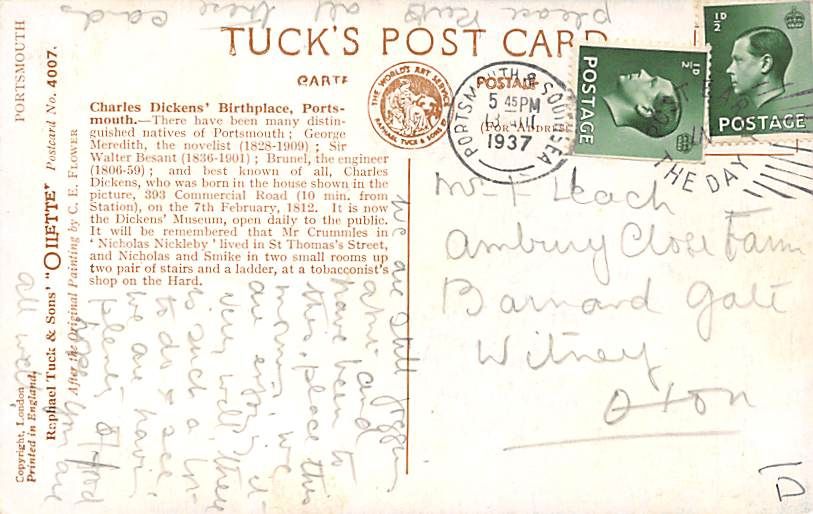 please keep all these cards
TUCK'S POST CARD
CARTE POSTALE
(FOR ADDRESS
THE WORLD'S ART SERVICE
RAPHAEL TUCK & SONS LTD
PORTSMOUTH & SOUTHSEA
5 45 PM
1937
POSTAGE
½D
½D
POSTAGE
IN
THE DAY
PORTSMOUTH
Raphael Tuck & Sons' "OILETTE" Postcard No. 4007.
After the Original Painting by C. E. FLOWER
Copyright, London
Printed in England.
Charles Dickens' Birthplace, Ports-
mouth.—There have been many distin-
guished natives of Portsmouth; George
Meredith, the novelist (1828-1909); Sir
Walter Besant (1836-1901); Brunel, the engineer
(1806-59); and best known of all, Charles
Dickens, who was born in the house shown in the
picture, 393 Commercial Road (10 min. from
Station), on the 7th February, 1812. It is now
the Dickens' Museum, open daily to the public.
It will be remembered that Mr Crummles in
'Nicholas Nickleby' lived in St Thomas's Street,
and Nicholas and Smike in two small rooms up
two pair of stairs and a ladder, at a tobacconist's
shop on the Hard.
we are still
and
have been to
this place this
morn, we
are
very well, there
is such a lot
to do & see
we are havin
plenty of food
hope you are
all well
Leach
Ambury Close Farm
Barnard Gate
Witney
Oxon
D1